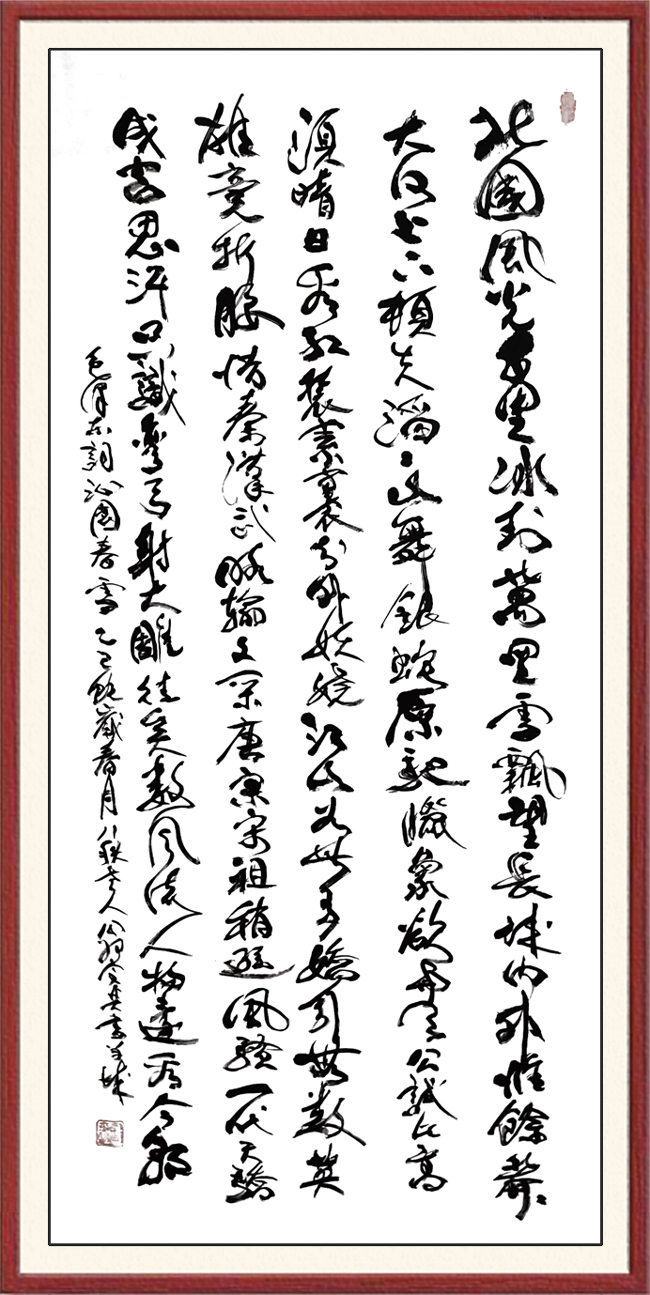 北國風光千里冰封萬里雪飄望長城内外惟餘莽〻
大河上下頓失滔〻山舞銀蛇原馳臘象欲與天公試比高
須晴日看紅裝素裹分外妖嬈江山如此多嬌引無數英
雄競折腰惜秦漢武略輸文采唐宗宋祖稍遜風騷一代天驕
成吉思汗只識彎弓射大雕俱往矣數風流人物還看今朝
毛澤東詞沁園春雪乙巳蛇歲春月八秩老人書羊城